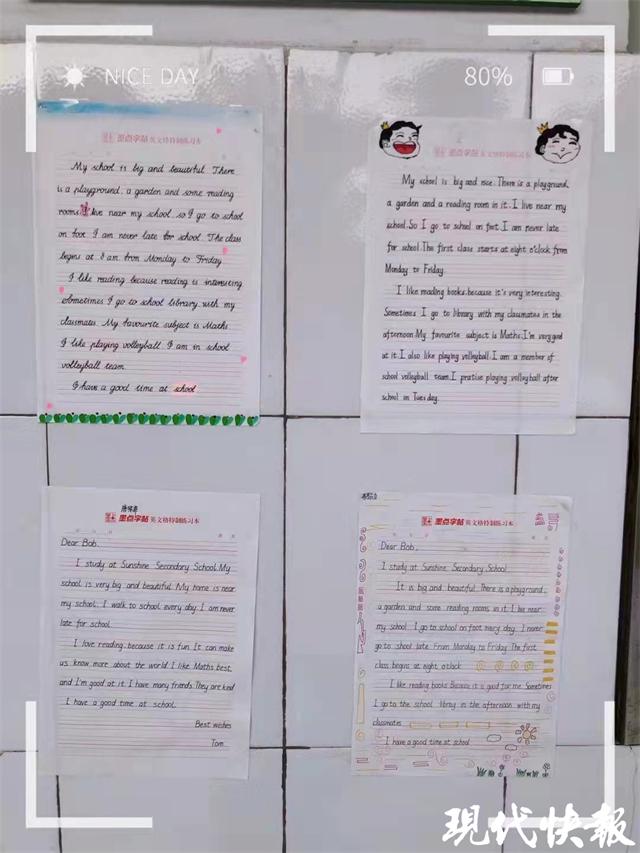 NICE DAY
80%
墨点字帖 英文格特制练习本
My school is big and beautiful. There
is a playground, a garden and some reading
rooms. I live near my school, so I go to school
on foot. I am never late for school. The class
begins at 8 am. from Monday to Friday.
I like reading because reading is interesting
Sometimes I go to school library with my
classmates. My favourite subject is Maths
I like playing volleyball. I am in school
volleyball team.
I have a good time at school
墨点字帖 英文格特制练习本
My school is big and nice. There is a playground,
a garden and a reading room in it. I live near my
school. So I go to school on foot. I am never late
for school. The first class starts at eight o'clock from
Monday to Friday.
I like reading books, because it's very interesting.
Sometimes I go to library with my classmates in the
afternoon. My favourite subject is Maths. I'm very good
at it. I also like playing volleyball. I am a member of
school volleyball team. I pratise playing volleyball after
school on Tuesday.
墨点字帖 英文格特制练习本
Dear Bob,
I study at Sunshine Secondary School. My
school is very big and beautiful. My home is near
my school, I walk to school every day. I am never
late for school.
I love reading, because it is fun. It can make
us know more about the world. I like Maths best,
and I'm good at it. I have many friends. They are kind
I have a good time at school.
Best wishes
Tom
墨点字帖 英文格特制练习本
Dear Bob,
I study at Sunshine Secondary School
It is big and beautiful. There is a playground,
a garden and some reading rooms in it. I live near
my school. I go to school on foot every day. I never
go to shool late. From Monday to Friday. The first
class begins at eight o'clock
I like reading books. Because it is good for me. Sometimes
I go to the school library in the afternoon with my
classmates
I have a good time at school
现代快报